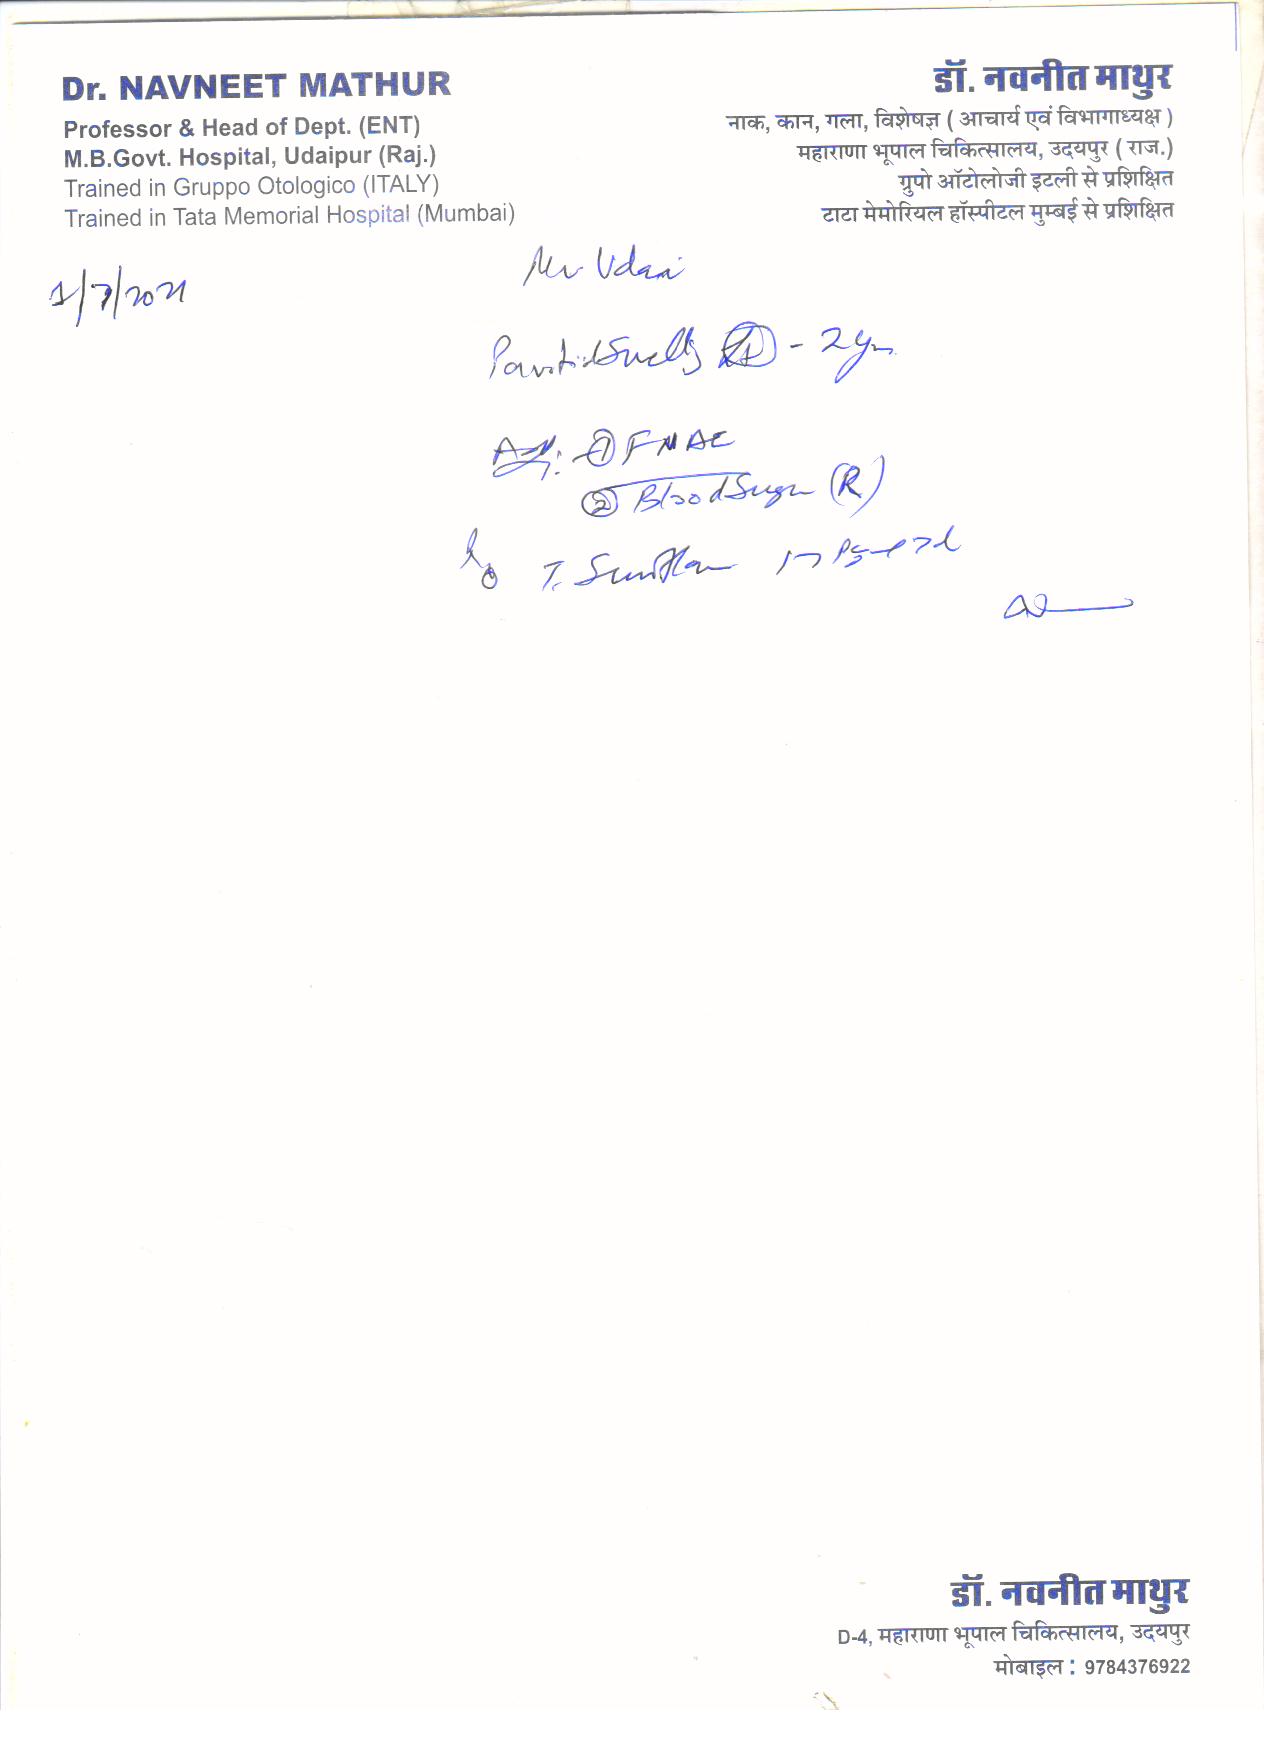 Dr. NAVNEET MATHUR
Professor & Head of Dept. (ENT)
M.B.Govt. Hospital, Udaipur (Raj.)
Trained in Gruppo Otologico (ITALY)
Trained in Tata Memorial Hospital (Mumbai)
डॉ. नवनीत माथुर
नाक, कान, गला, विशेषज्ञ ( आचार्य एवं विभागाध्यक्ष )
महाराणा भूपाल चिकित्सालय, उदयपुर ( राज.)
ग्रुपो ऑटोलोजी इटली से प्रशिक्षित
टाटा मेमोरियल हॉस्पीटल मुम्बई से प्रशिक्षित
1/7/2021
Mr Udai
Parotid Swelling - 2 yr
① FNAC
② Blood Sugar (R)
T.
डॉ. नवनीत माथुर
D-4, महाराणा भूपाल चिकित्सालय, उदयपुर
मोबाइल : 9784376922